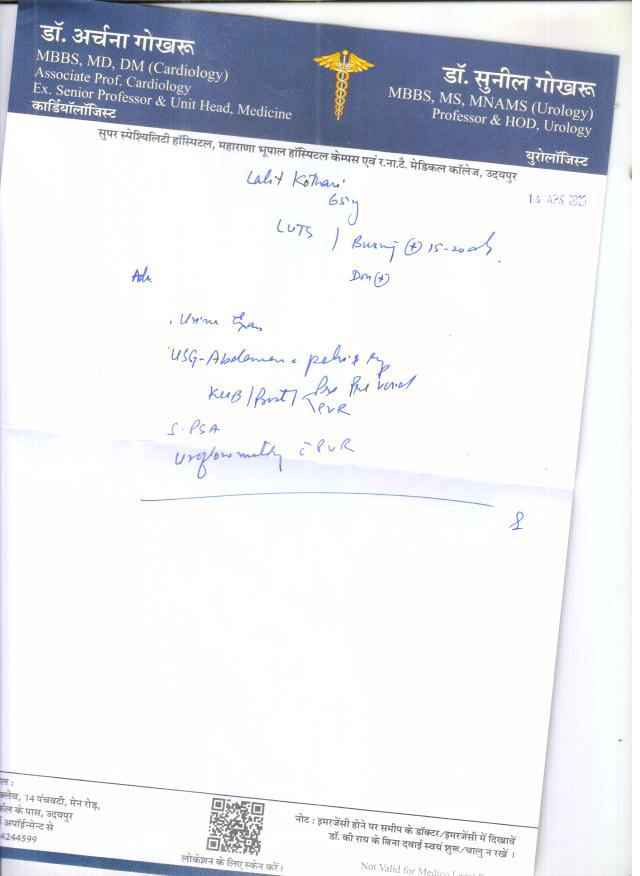 डॉ. अर्चना गोखरू
MBBS, MD, DM (Cardiology)
Associate Prof. Cardiology
Ex. Senior Professor & Unit Head, Medicine
कार्डियॉलॉजिस्ट
डॉ. सुनील गोखरू
MBBS, MS, MNAMS (Urology)
Professor & HOD, Urology
युरोलॉजिस्ट
सुपर स्पेश्यिलिटी हॉस्पिटल, महाराणा भूपाल हॉस्पिटल केम्पस एवं र.ना.टै. मेडिकल कॉलेज, उदयपुर
APR 2025
Lalit Kothari
65y
LUTS / Burning (+) 15-20
(+)
Adv.
Urine
USG-Abdomen
KUB / Prost / Pre
PVR
S. PSA
Uroflowmetry c̄ PVR
14 पंचवटी, मेन रोड़,
के पास, उदयपुर
अपॉईन्मेन्ट से
4244599
लोकेशन के लिए स्केन करें।
नोट : इमरजेंसी होने पर समीप के डॉक्टर/इमरजेंसी में दिखावें
डॉ. की राय के बिना दवाई स्वयं शुरू/चालु न रखें ।
Not Valid for Medico